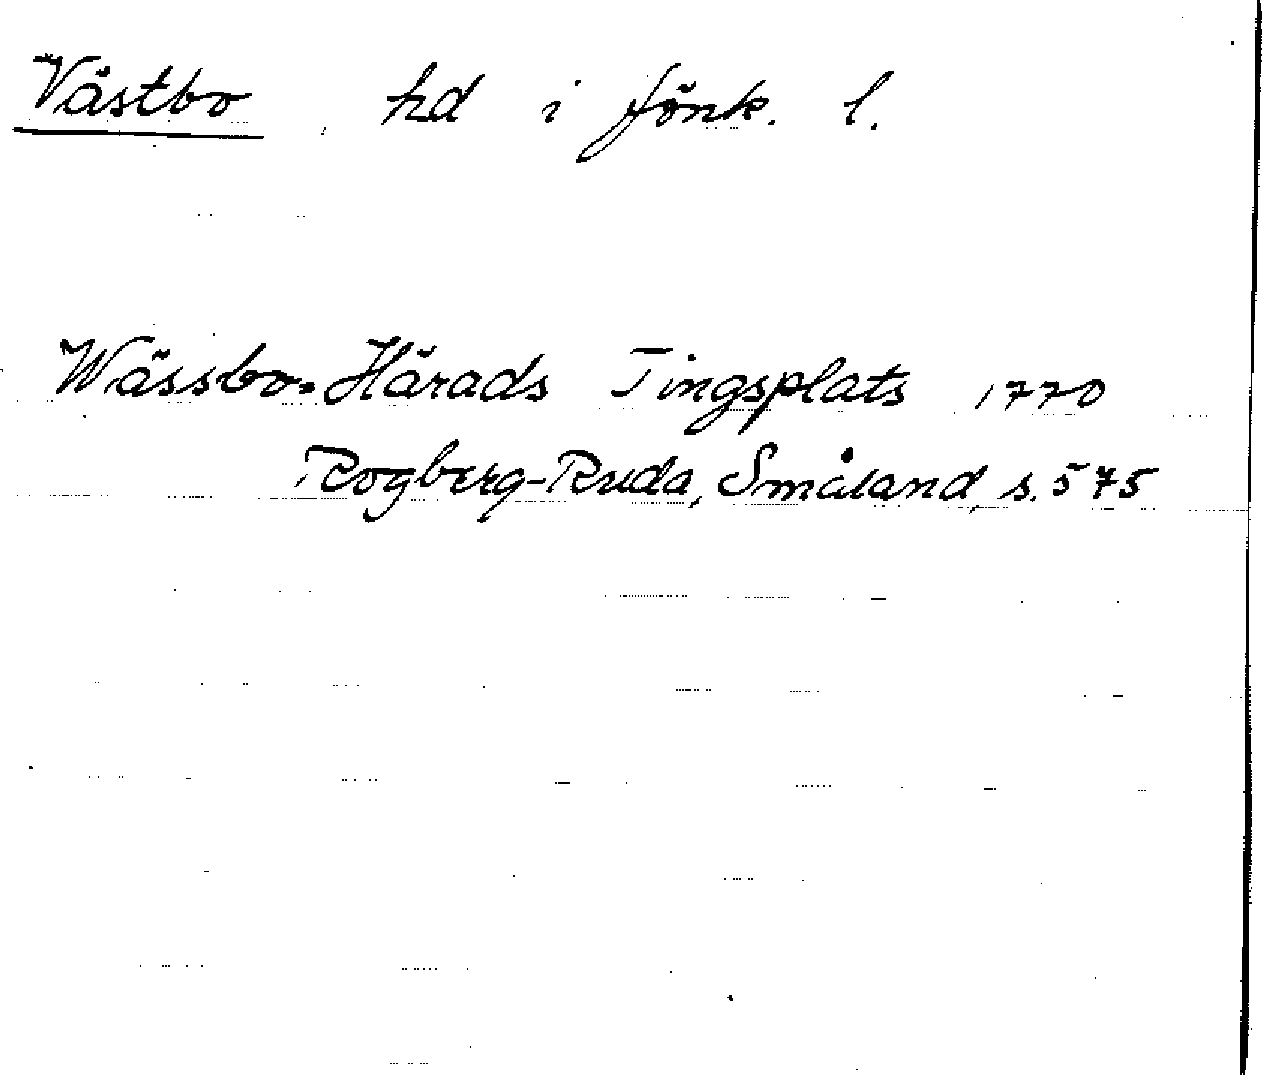 Västbo hd i Jönk. l.
Wässbo-Härads Tingsplats 1770
Rogberg-Ruda, Småland, s. 575